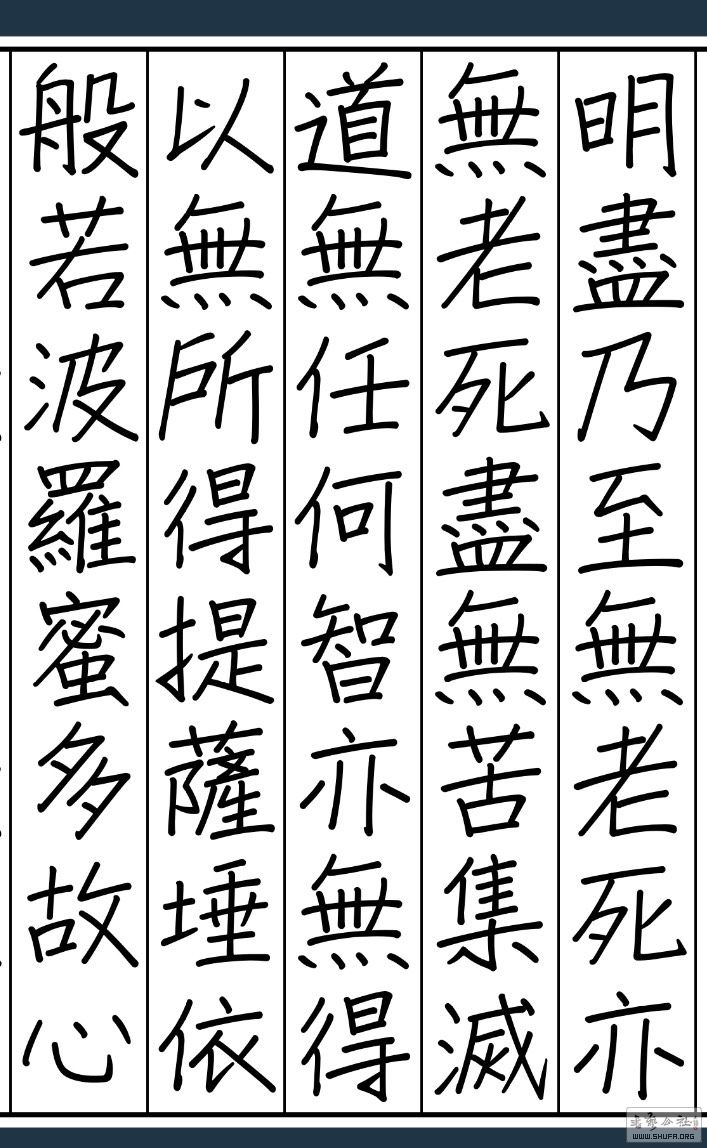 明盡乃至無老死亦
無老死盡無苦集滅
道無任何智亦無得
以無所得提薩埵依
般若波羅蜜多故心
公社
WWW.SHUFA.ORG